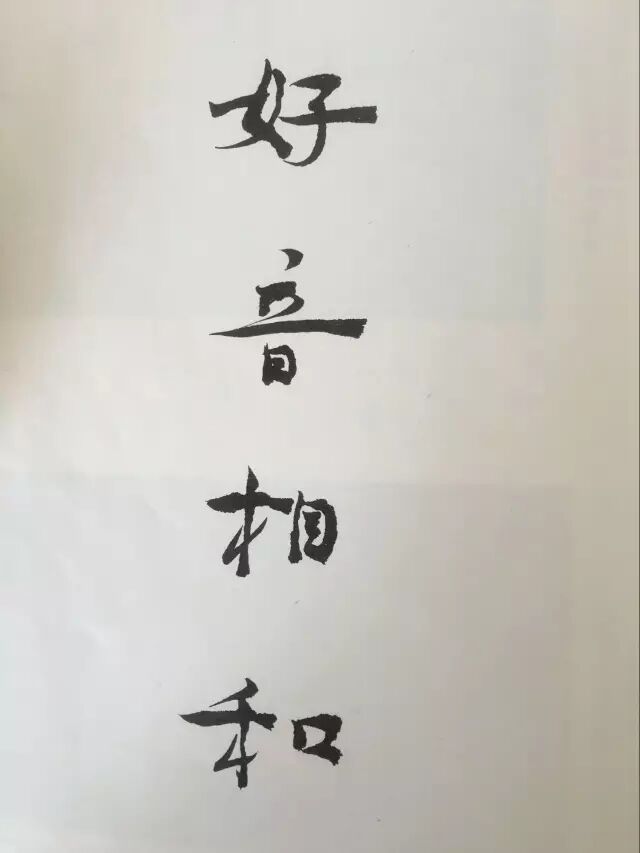 好音相和